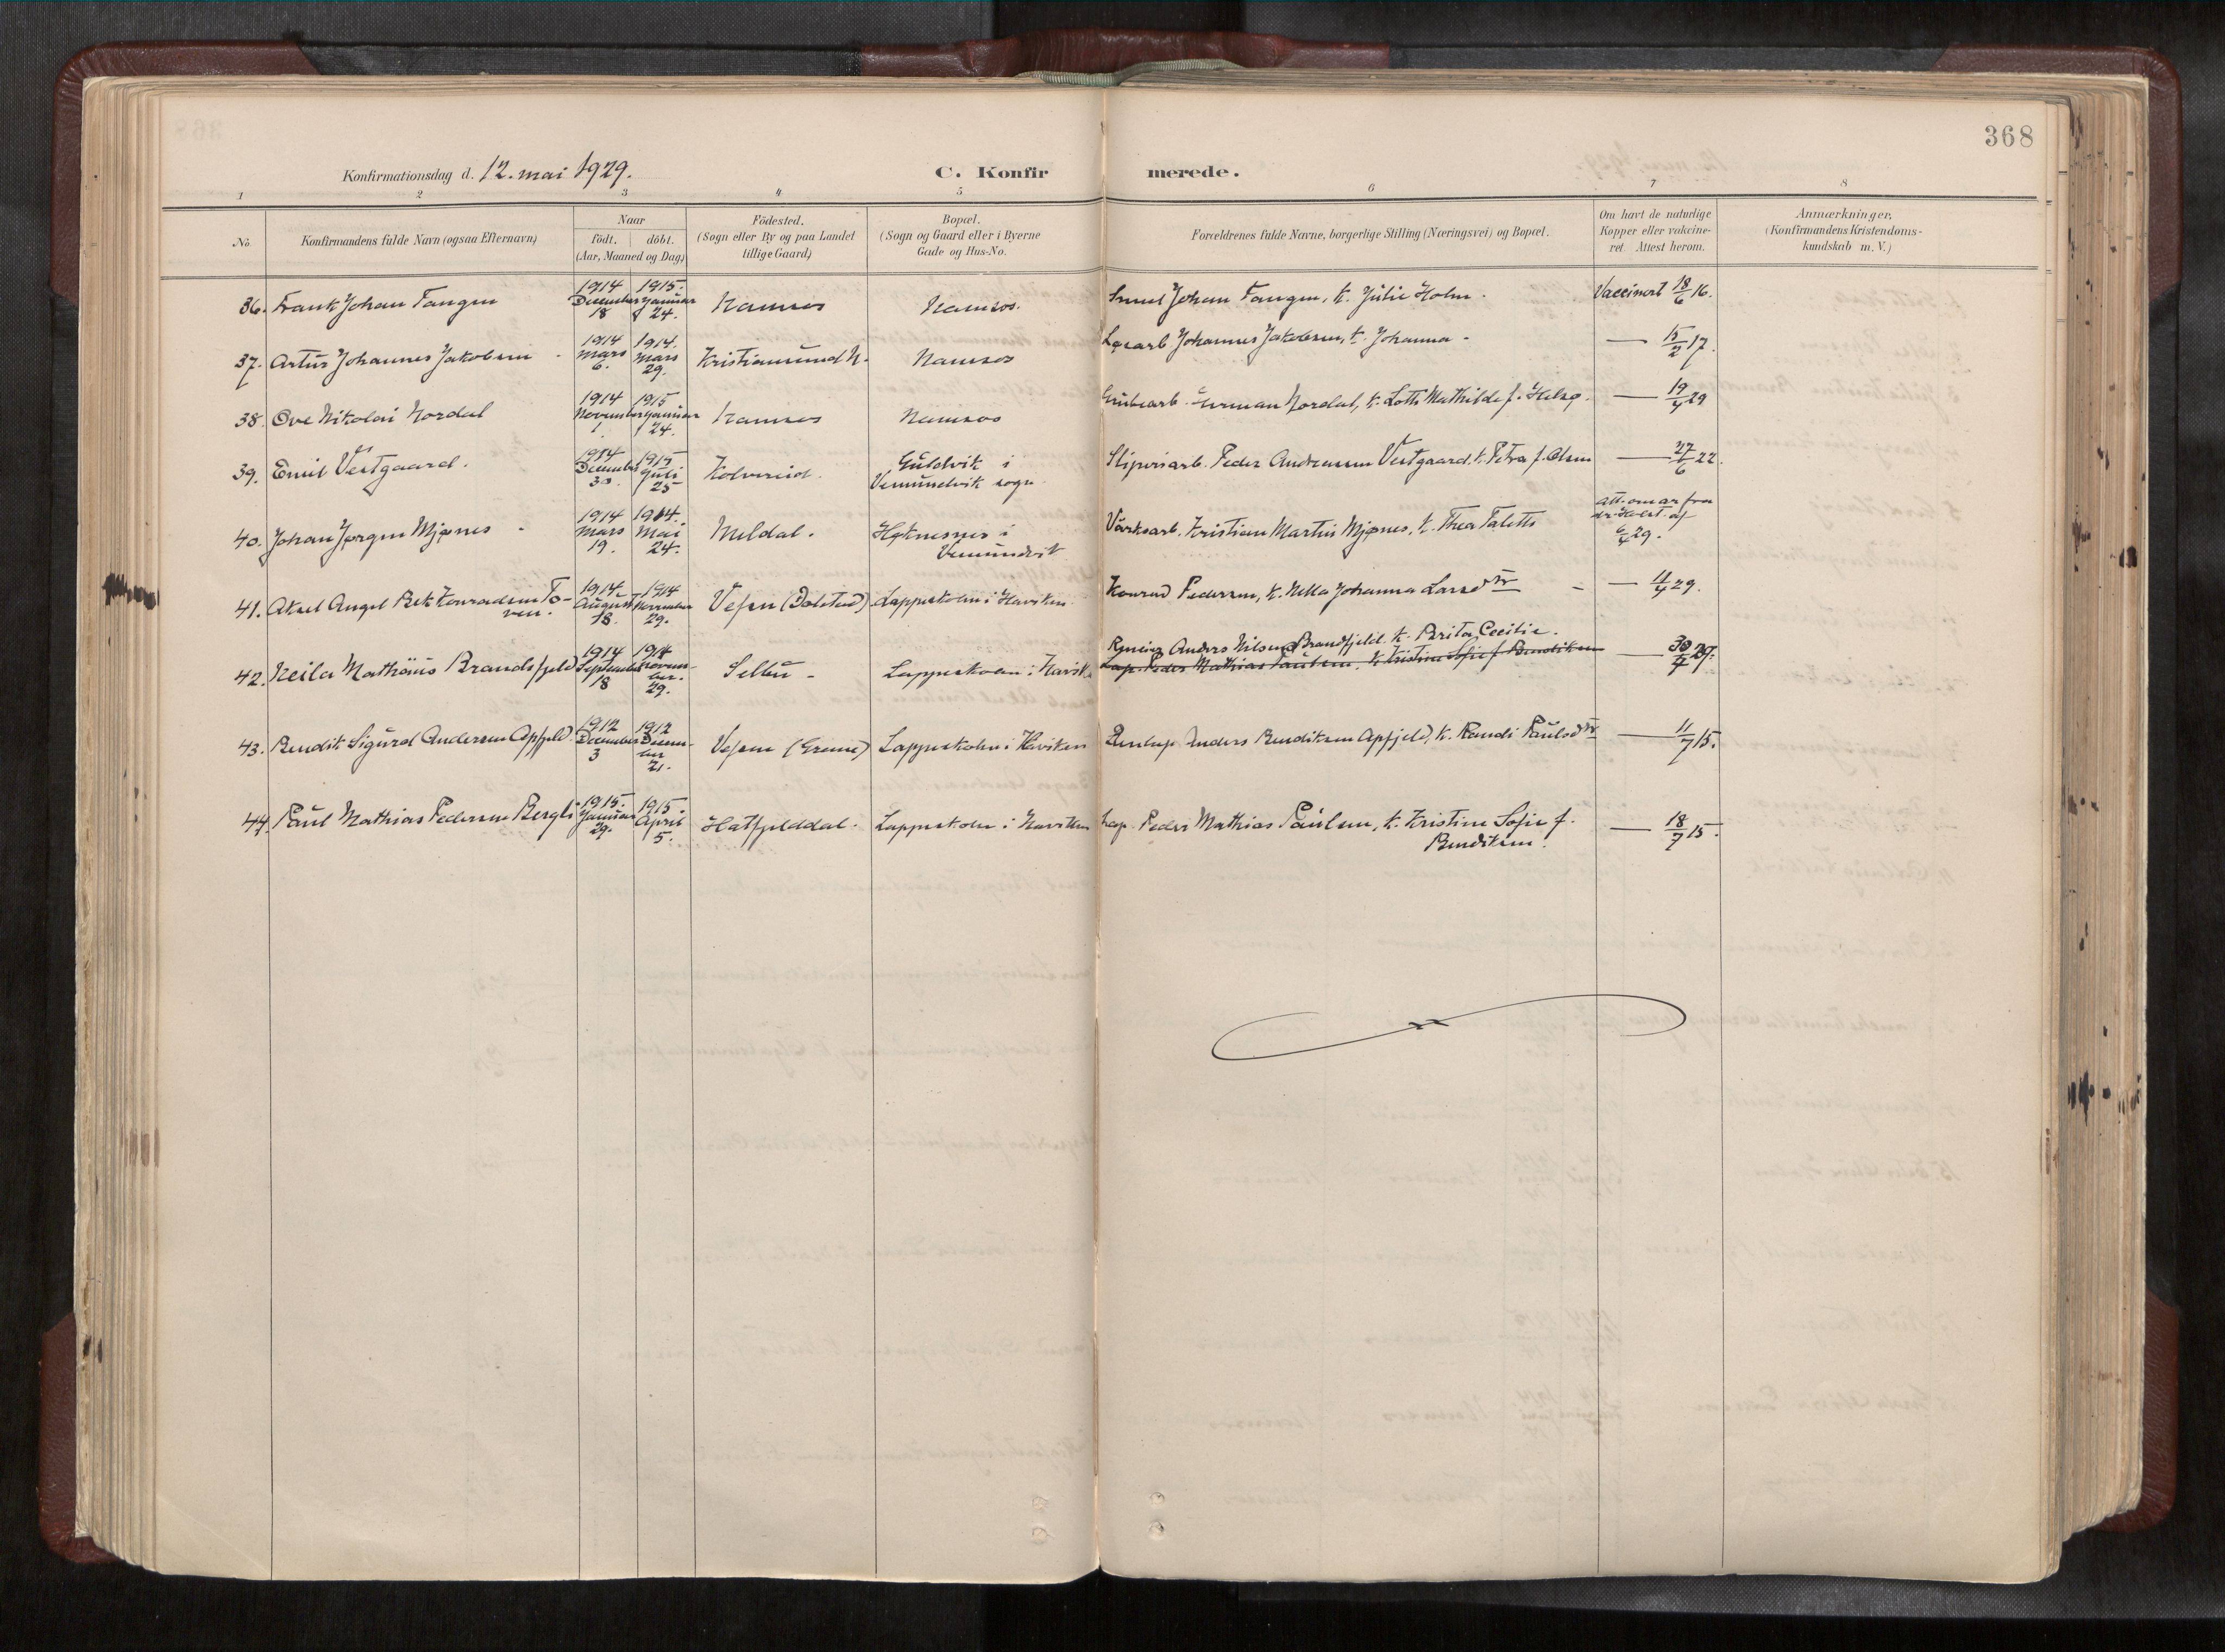 368
Konfirmationsdag d. 12. mai 1929.
C. Konfir merede.
1 2 3 4 5 6 7 8
No.
Konfirmandens fulde Navn (ogsaa Efternavn)
Naar
födt. döbt.
(Aar, Maaned og Dag)
Födested.
(Sogn eller By og paa Landet
tillige Gaard)
Bopæl.
(Sogn og Gaard eller i Byerne
Gade og Hus-No.
Forældrenes fulde Navne, borgerlige Stilling (Næringsvei) og Bopæl.
Om havt de naturlige
Kopper eller vakcine-
ret. Attest herom.
Anmærkninger.
(Konfirmandens Kristendoms-
kundskab m. V.)
36. Frank Johan Tangen 1914 December 18 1915. Januar 24. Namsos Namsos. Johan Tangen, K. Julie Holm. Vaccinert 18/6 16.
37. Artur Johannes Jakobsen 1914 Mars 6. 1914. Mars 29. Kristiansund N. Namsos Johannes Jakobsen, K. Johanna - — 15/2 17.
38. Ove Nikolai Nordal 1914 November 1. 1915 Januar 24. Namsos Namsos Herman Nordal, K. Lotti Mathilde f. — 19/4 29
39. Emil Vestgaard. 1914 December 30. 1915 Juli 25 Kolvereid. Guldvik i
Vemundvik sogn Sliperiarb. Peder Andreassen Vestgaard, K. Petra f. Olsen — 27/6 22.
40. Johan Jørgen Mjønes 1914 Mars 19. 1914. Mai 24. Meldal. Høknesnes i
Vemundvik Kristian Martin Mjønes, K. Thea Taletta
6/4 29.
41. Aksel Angel Konradsen To-
ven. 1914 August 18. 1914 November 29. Vefsn (Dolstad) Lappeskolen i Havika Konrad Pedersen, K. Nella Johanna Larsdtr — 11/4 29.
42. Neila Mathäus Brandsfjeld 1914 September 18 1914 Novem-
ber. 29. Selbu - Lappeskolen i Havika Anders Nilsen Brandfjeld, K. Brita Cecilie.
Lap. Peder Mathias Paulsen, K. Kristine Sofie f. Bendiksen — 30/4 29.
43. Bendik Sigurd Andersen Apfjeld 1912 December 3 1912 Decem-
ber 21. Vefsn (Grane) Lappeskolen i Haviken Anders Bendiksen Apfjeld, K. Randi Paulsdtr — 11/7 15.
44. Paul Mathias Pedersen Bergli 1915. Januar 29. 1915 April 5. Hatfjelddal. Lappeskolen i Haviken Lap. Peder Mathias Paulsen, K. Kristine Sofie f.
Bendiksen. — 18/7 15.